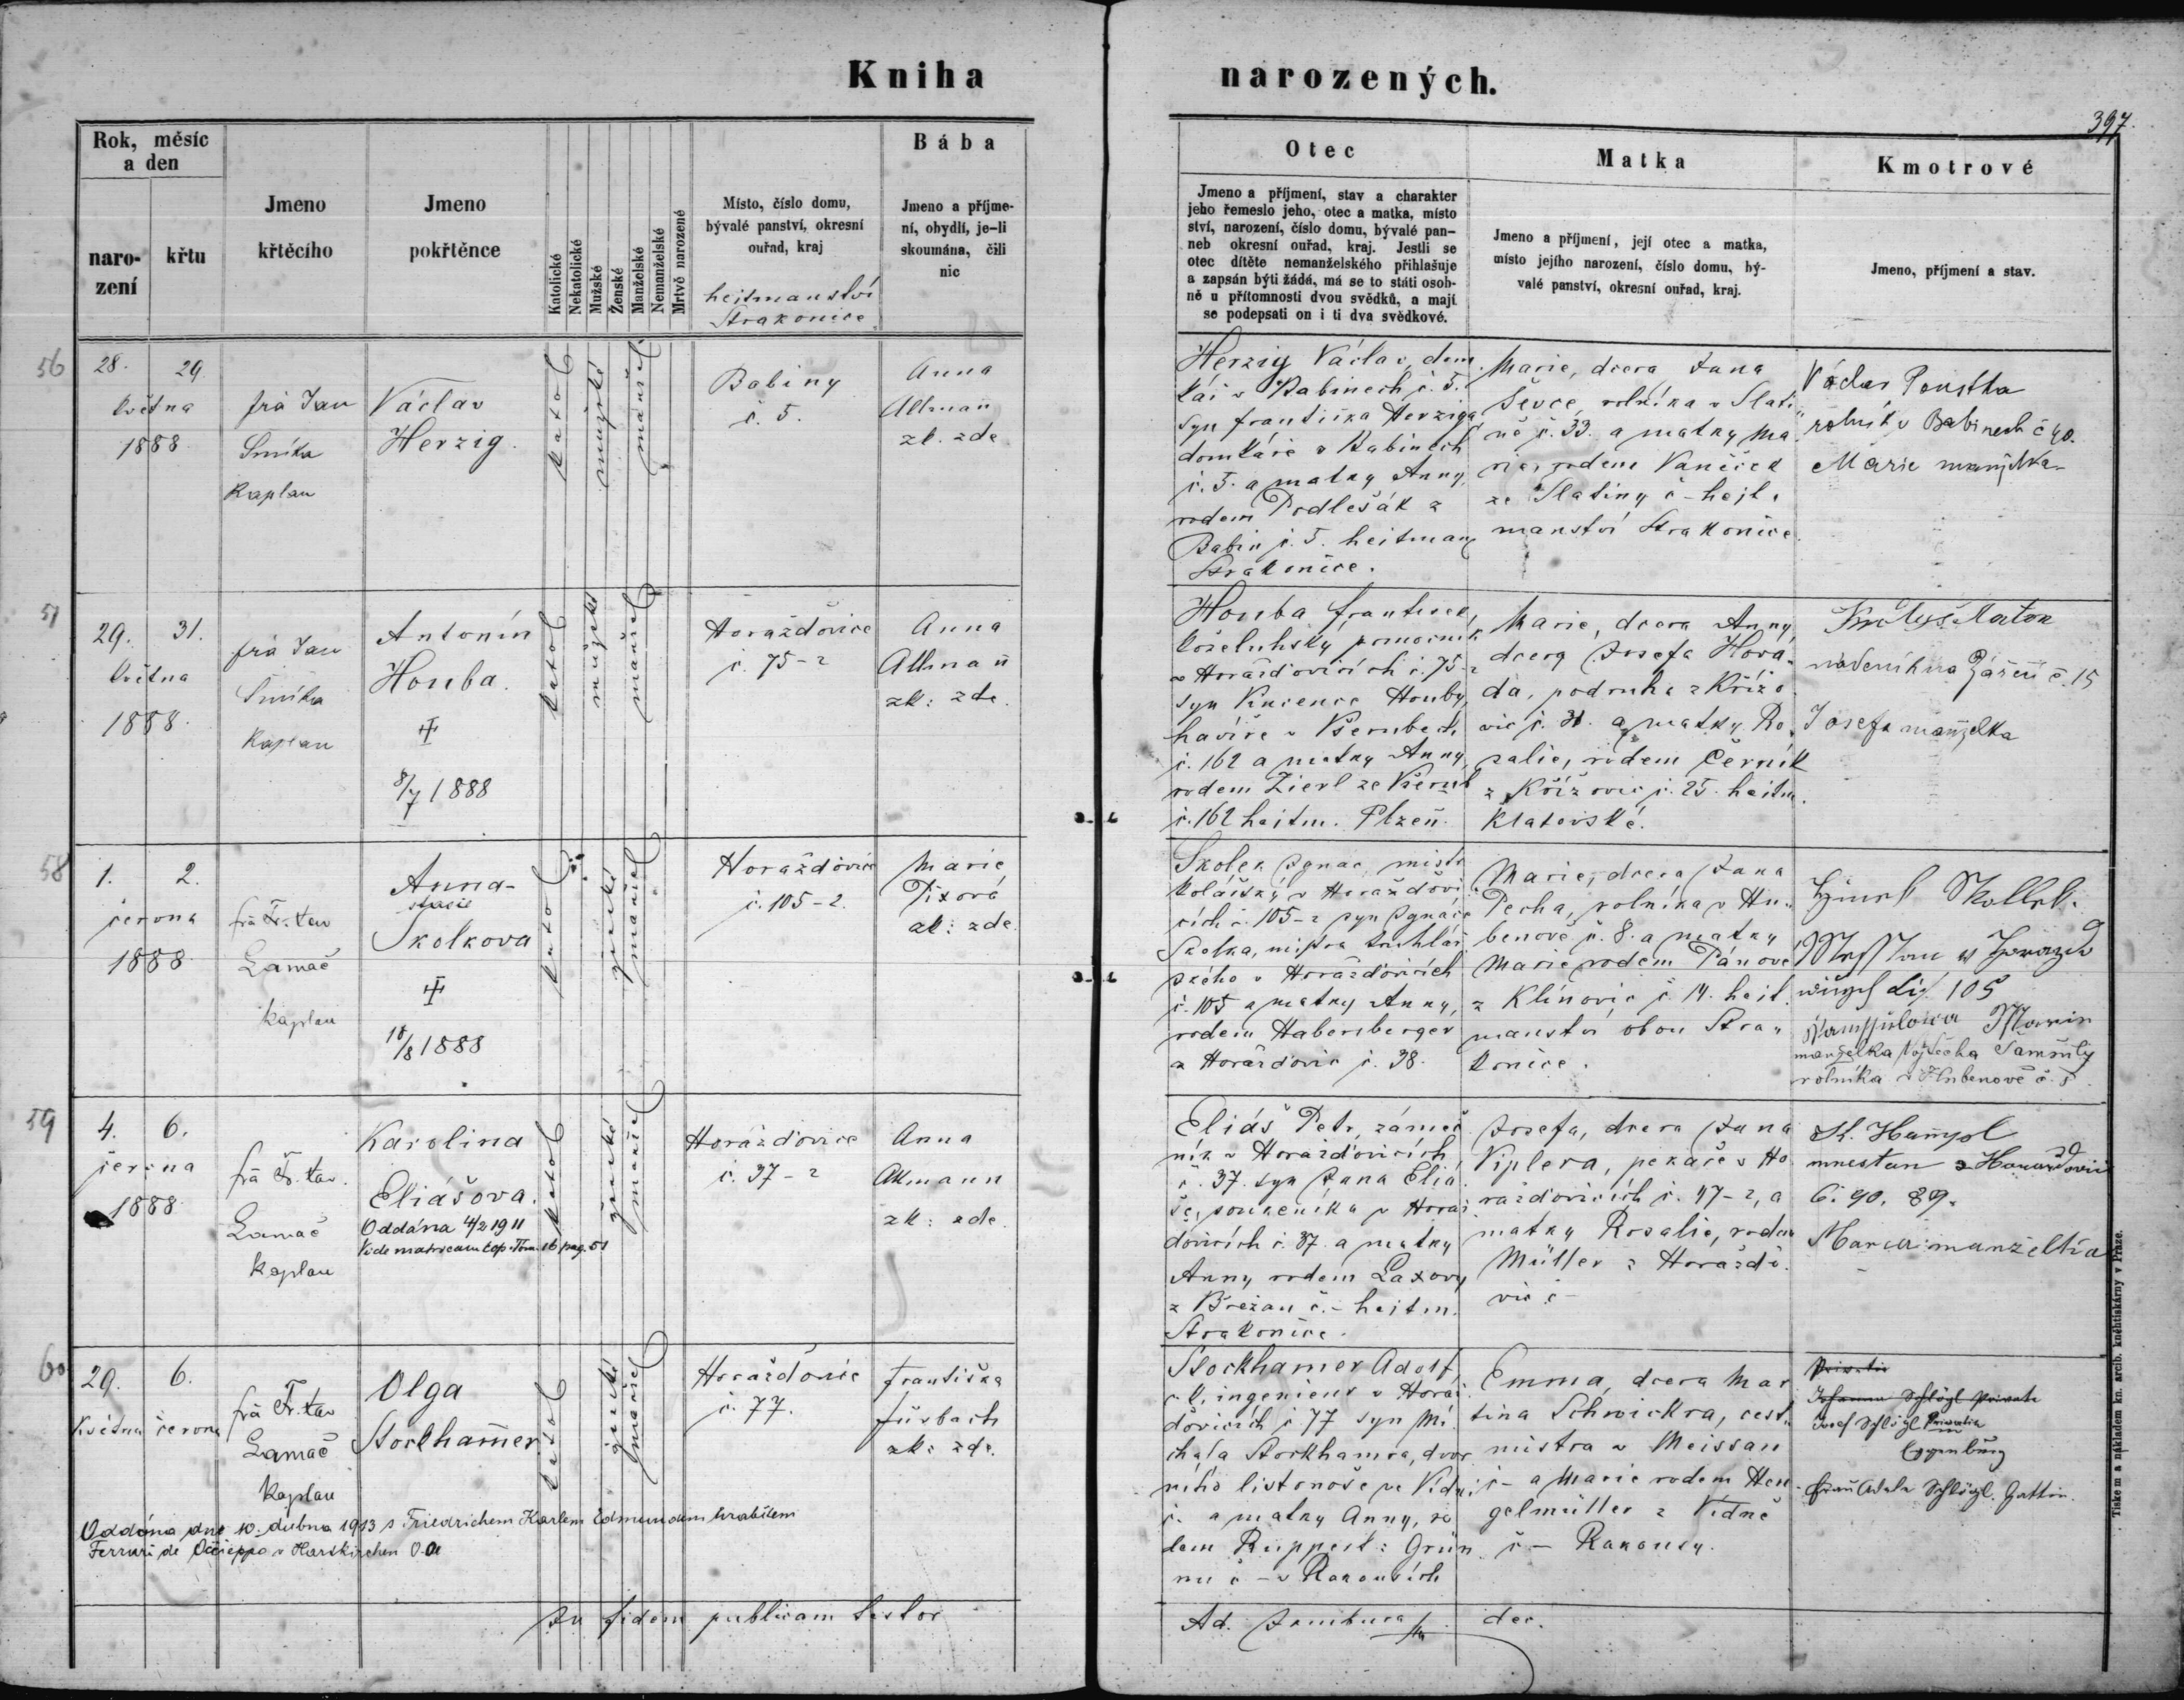 Kniha narozených.
397.
Rok, měsíc
a den
naro-
zení
křtu
Jmeno
křtěcího
Jmeno
pokřtěnce
Katolické
Nekatolické
Mužské
Ženské
Manželské
Nemanželské
Mrtvě narozené
Místo, číslo domu,
bývalé panství, okresní
ouřad, kraj
hejtmanství
Strakonice
Bába
Jmeno a příjme-
ní, obydlí, je-li
skoumána, čili
nic
Otec
Jmeno a příjmení, stav a charakter
jeho řemeslo jeho, otec a matka, místo
ství, narození, číslo domu, bývalé pan-
neb okresní ouřad, kraj. Jestli se
otec dítěte nemanželského přihlašuje
a zapsán býti žádá, má se to státi osob-
ně u přítomnosti dvou svědků, a mají
se podepsati on i ti dva svědkové.
Matka
Jmeno a příjmení, její otec a matka,
místo jejího narození, číslo domu, bý-
valé panství, okresní ouřad, kraj.
Kmotrové
Jmeno, příjmení a stav.
56
28. 29.
května
1888
frà Jan
Smíka
Kaplan
Václav
Herzig.
katol
mužské
manžel
Babiny
č. 5.
Anna
Altman̄
zk. zde
Herzig Václav, dom
kář v Babinech č. 5.
syn Františka Herziga
domkáře v Babinech
č. 5. a matky Anny,
rodem Podlešák z
Babin č. 5. heitman
Strakonice.
Marie, dcera Jana
Ševce, rolníka v Slati
ně č. 33. a matky Ma
rie, rodem Vaněček
ze Slatiny č - hejt
manství Strakonice.
Václav Poustka
rolník v Babinech č 40.
Marie manželka
57
29. 31.
května
1888.
frà Jan
Smíka
Kaplan
Antonín
Houba.
8/7 1888
katol
mužské
manžel
Horažďovice
č. 75-2
Anna
Altman̄
zk: zde.
Houba František,
koželuhský pomocník
v Horažďovicích č. 75-2
syn Vincence Houby,
havíře v Všerubech
č. 162 a matky Anny,
rodem Zierl ze Všerub
č. 162 hejtm. Plzeň.
Marie, dcera Anny,
dcera Josefa Hova
da, podruha z Křížo
vic č. 31. a matky Ro
salie, rodem Černík
z Křížovic č. 25. heitm.
Klatovské.
č. 15
Josefa manželka
58
1. 2.
června
1888
frà Fr. tav
Lamač
kaplan
Anna-
stasie
Skolkova
18/8 1888
katol
ženské
manžel
Horažďovice
č. 105-2.
Marie
Pixová
zk: zde.
Skolek Ignac, mistr
kolářský v Horažďovi
cích č. 105-2 syn Ignace
Skolka, mistra truhlář
ského v Horažďovicích
č. 105 a matky Anny,
rodem Habersberger
z Horažďovic č. 38.
Marie, dcera Jana
Pecha, rolníka v Hu-
benově č. 8. a matky
Marie rodem Pánove
z Klínovic č. 14. hejt.
manství obou Stra-
konice.
105
Marie
manželka Vojtěcha Šamšuly
rolníka v Hubenově č. 5
59
4. 6.
června
1888
frà Fr. tav.
Lamač
kaplan
Karolina
Eliášova.
Oddána 4/2 1911
Vide matricam cop. Tom. 16 pag. 51
katol
ženské
manžel
Horažďovice
č. 37-2
Anna
Altmann
zk: zde.
Eliáš Petr, zámeč
ník v Horažďovicích
č. 37. syn Jana Eliá
še, soukeníka v Horaž
ďovicích č. 37. a matky
Anny rodem Laxovy
z Břežan č. - heitm.
Strakonice.
Josefa, dcera Jana
Viplera, pekaře v Ho
ražďovicích č. 47-2, a
matky Rosalie, rodem
Müller z Horažďo
vic č -
č. 90. 89.
Maria manželka
60
29. 6.
května června
frà Fr. tav
Lamač
kaplan
Olga
Stockham̄er
katol
ženské
manžel
Horažďovic
č. 77.
Františka
Fürbach
zk: zde.
Oddána dne 10. dubna 1913 s Friedrichem Karlem Edmundem hrabětem
Ferrari de Occieppo v Harskirchen O. Oe
Stockhamer Adolf,
c. k. ingenieur v Horaž
ďovicích č 77 syn Mi
chala Stockhamra, dvor
ního listonoše ve Vídni
č. a matky Anny, ro
dem Ruppert: Grün
nu č - v Rakousích
Emma, dcera Mar
tina Schwickra, cest.
mistra v Meissau
č - a Marie rodem Hen
gelmüller z Vídně
č - Rakousy.
Privatier
Johann Schlögl Private
Josef Schlögl Privatier
in
Eggenburg
Frau Adele Schlögl. Gattin.
In fidem publicam testor
Ad. Jambura dec.
Tiskem a nákladem kn. arcib. kněhtiskárny v Praze.